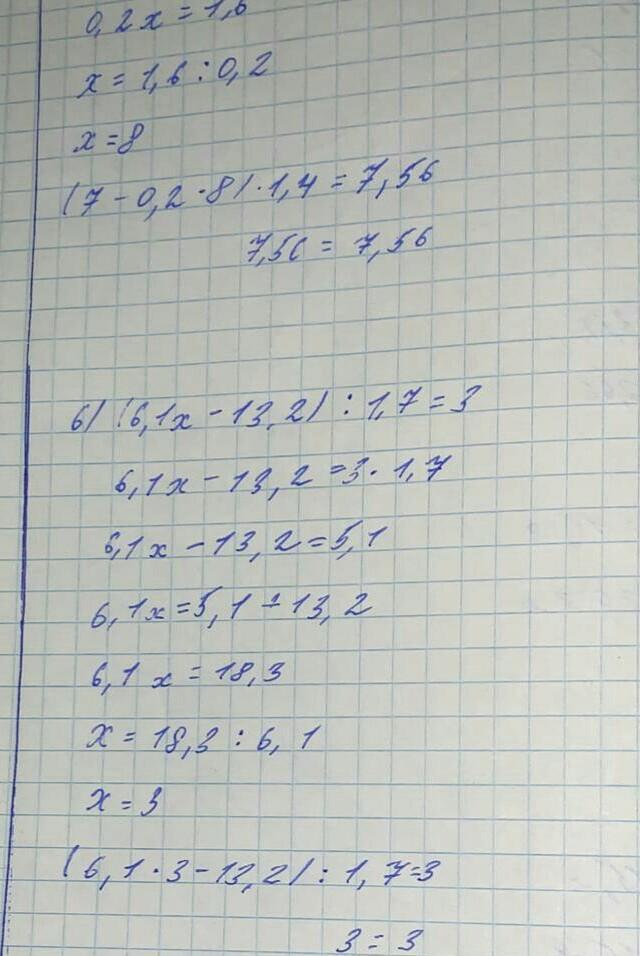 0,2x = 1,6
x = 1,6 : 0,2
x = 8
(7 - 0,2 · 8) · 1,4 = 7,56
7,56 = 7,56
б) (6,1x - 13,2) : 1,7 = 3
6,1x - 13,2 = 3 · 1,7
6,1x - 13,2 = 5,1
6,1x = 5,1 + 13,2
6,1x = 18,3
x = 18,3 : 6,1
x = 3
(6,1 · 3 - 13,2) : 1,7 = 3
3 = 3